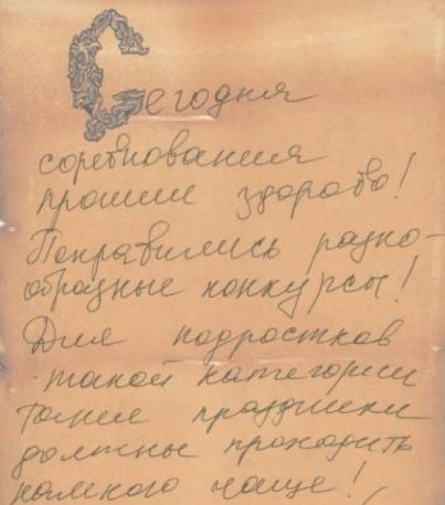 Сегодня
соревнования
прошли здорово!
Понравились разно-
образные конкурсы!
Для подростков
такой категории
такие праздники
должны проходить
намного чаще!